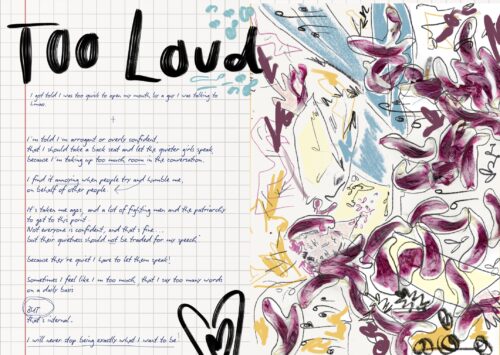 Too Loud
I got told I was too quick to open my mouth, by a guy I was talking to
I'm told I'm arrogant or overly confident,
that I should take a back seat and let the quieter girls speak,
because I'm taking up too much room in the conversation.
I find it annoying when people try and humble me,
on behalf of other people
It's taken me ages, and a lot of fighting men and the patriarchy
to get to this point.
Not everyone is confident, and that's fine...
but their quietness should not be traded for my speech.
because they're quiet I have to let them speak!
Sometimes I feel like I'm too much, that I say too many words
on a daily basis
BUT
that's internal.
I will never stop being exactly what I want to be!